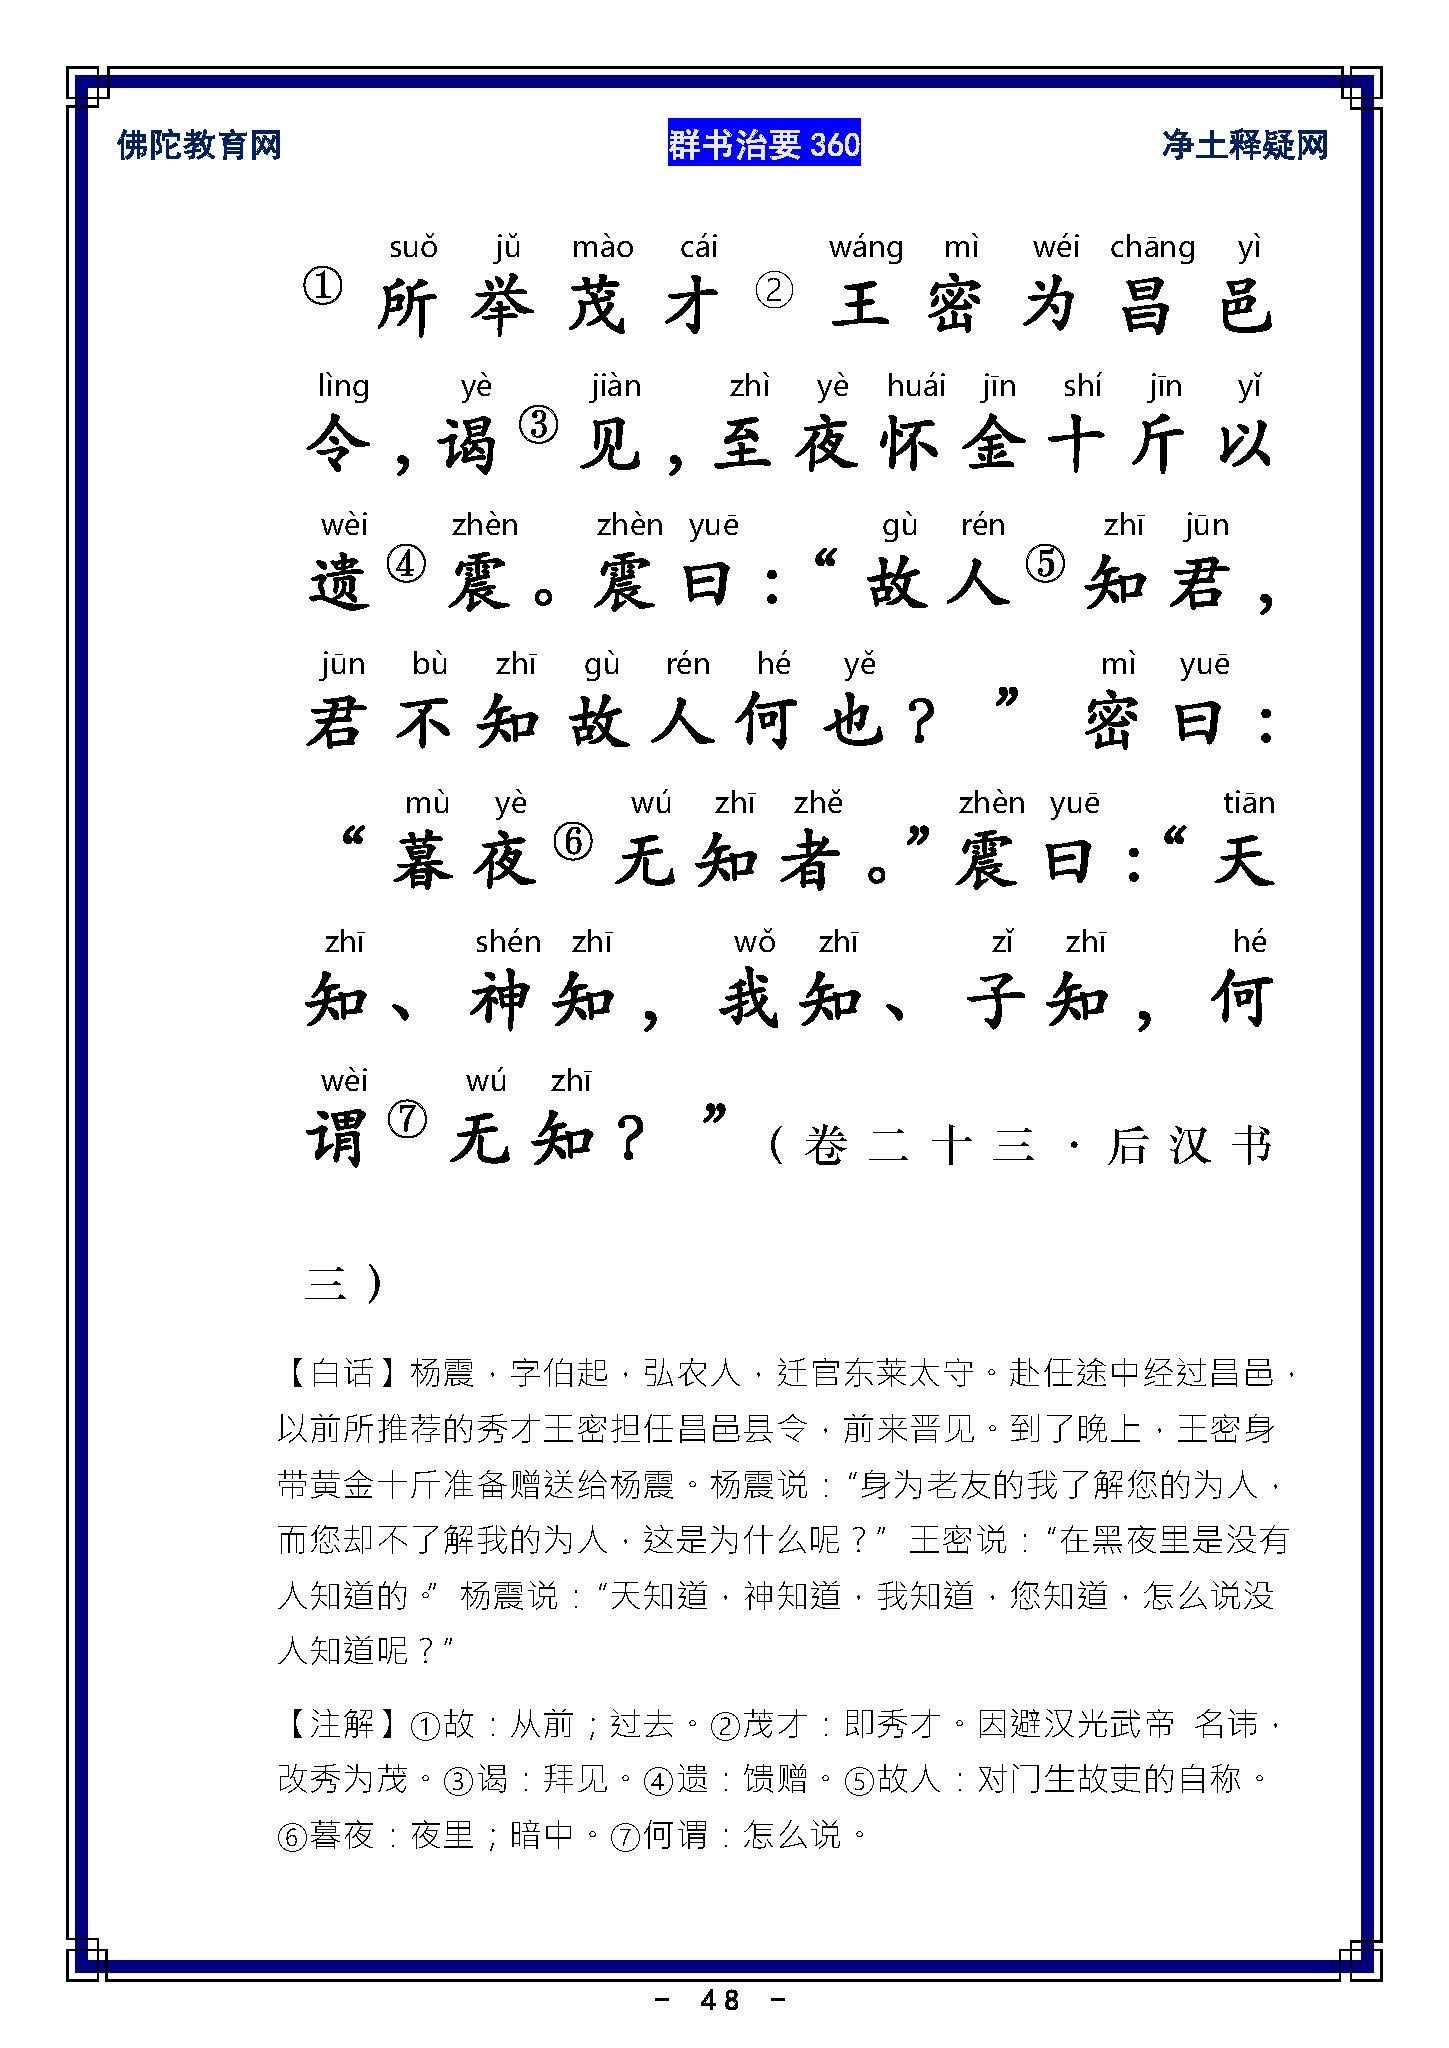 佛陀教育网 群书治要 360 净土释疑网
suǒ jǔ mào cái wáng mì wéi chāng yì
①所举茂才②王密为昌邑
lìng yè jiàn zhì yè huái jīn shí jīn yǐ
令，谒③见，至夜怀金十斤以
wèi zhèn zhèn yuē gù rén zhī jūn
遗④震。震曰：“故人⑤知君，
jūn bù zhī gù rén hé yě mì yuē
君不知故人何也？”密曰：
mù yè wú zhī zhě zhèn yuē tiān
“暮夜⑥无知者。”震曰：“天
zhī shén zhī wǒ zhī zǐ zhī hé
知、神知，我知、子知，何
wèi wú zhī
谓⑦无知？”（卷二十三·后汉书
三）
【白话】杨震，字伯起，弘农人，迁官东莱太守。赴任途中经过昌邑，
以前所推荐的秀才王密担任昌邑县令，前来晋见。到了晚上，王密身
带黄金十斤准备赠送给杨震。杨震说：“身为老友的我了解您的为人，
而您却不了解我的为人，这是为什么呢？”王密说：“在黑夜里是没有
人知道的。”杨震说：“天知道，神知道，我知道，您知道，怎么说没
人知道呢？”
【注解】①故：从前；过去。②茂才：即秀才。因避汉光武帝 名讳，
改秀为茂。③谒：拜见。④遗：馈赠。⑤故人：对门生故吏的自称。
⑥暮夜：夜里；暗中。⑦何谓：怎么说。
- 48 -